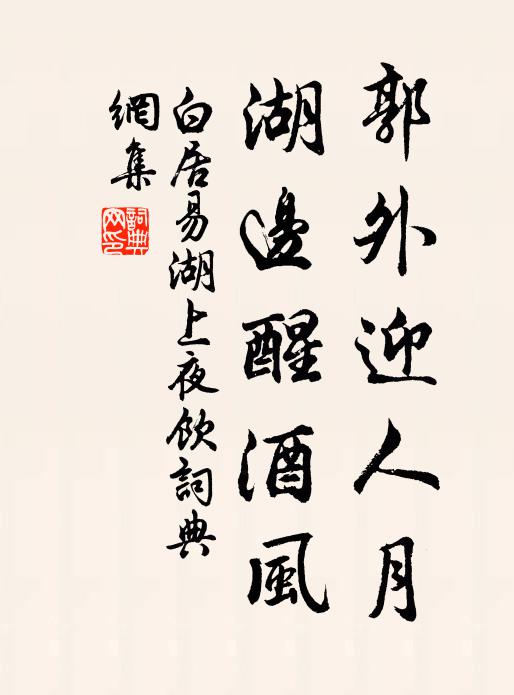 郭外迎人月
湖邊醒酒風
白居易湖上夜飲詞典
網集
詞典
网印